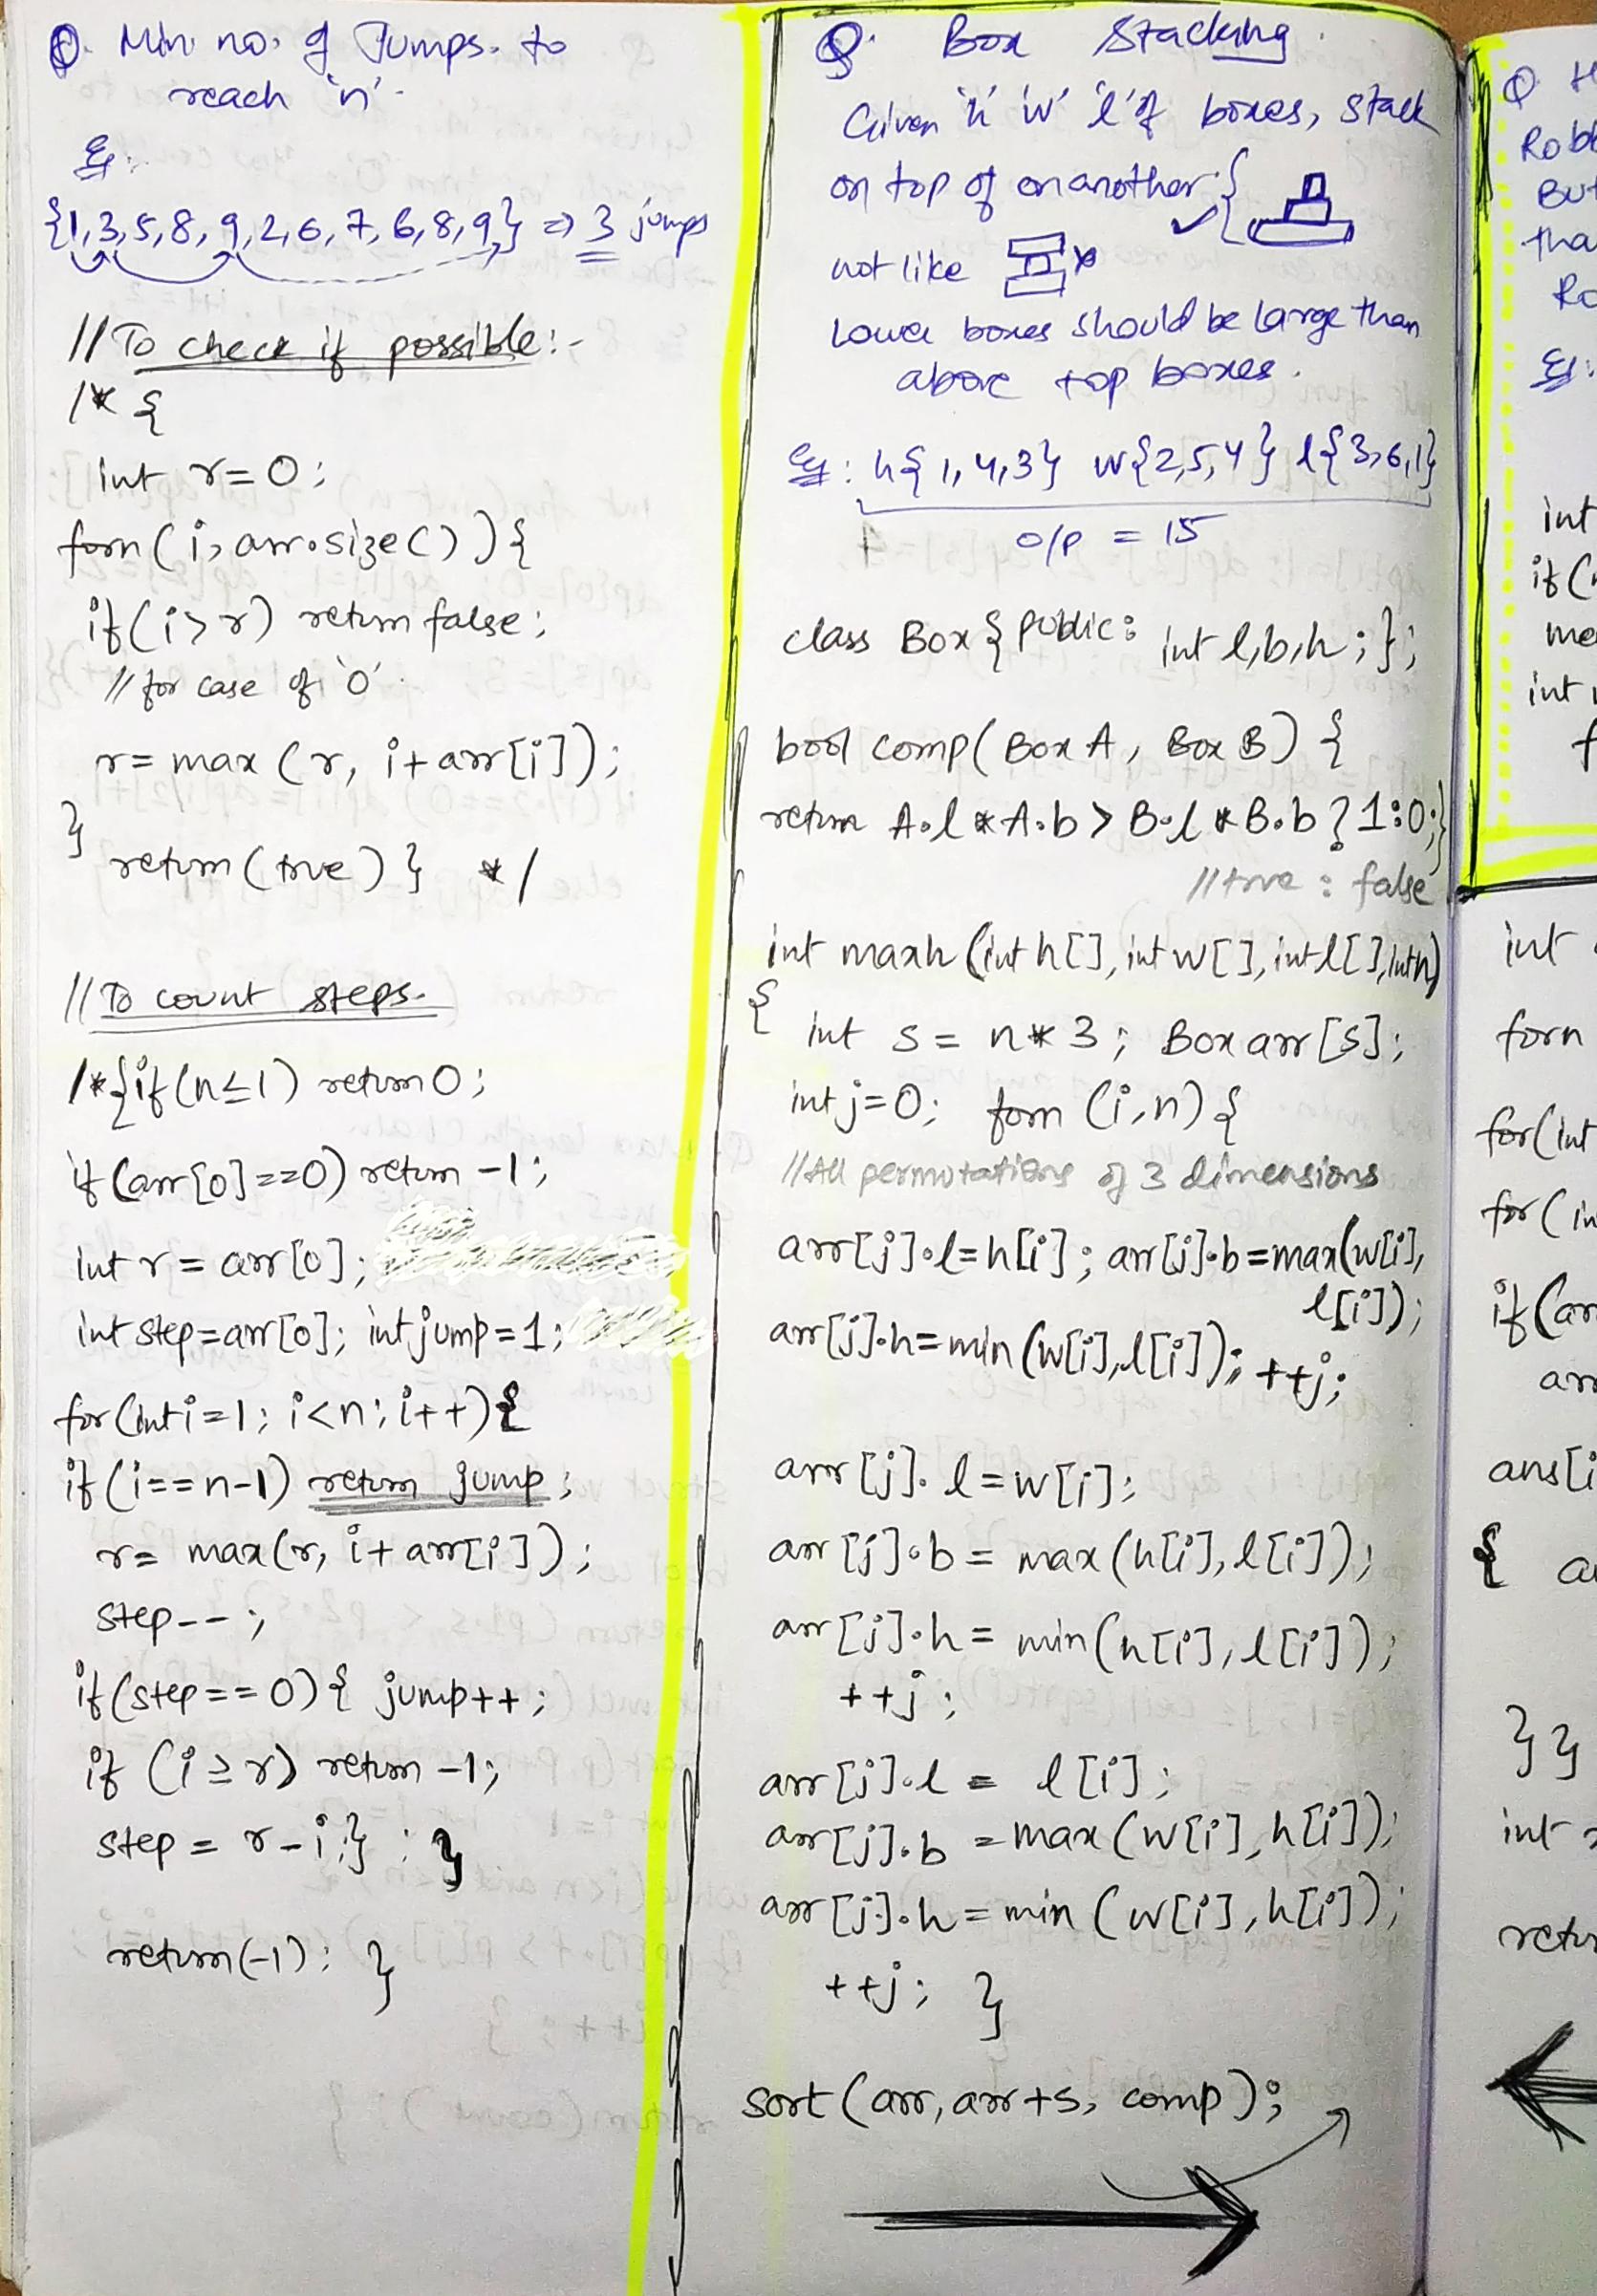 Q. Min no. of Jumps. to
reach 'n'.
Eg:
{1,3,5,8,9,2,6,7,6,8,9} => 3 jumps
// To check if possible:-
/* {
int r=0;
forn(i, arr.size()){
if(i>r) return false;
// for case of '0'.
r=max(r, i+arr[i]);
}
return(true)} */
// To count steps.
/*{if(n≤1) return 0;
if(arr[0]==0) return -1;
int r = arr[0];
int step=arr[0]; int jump=1;
for(int i=1; i<n; i++){
if(i==n-1) return jump;
r= max(r, i+arr[i]);
step--;
if(step==0){ jump++;
if (i≥r) return -1;
step = r-i;} ; }
return(-1); }
Q. Box Stacking.
Given 'h' 'w' 'l' of boxes, stack
on top of on another. ✓{
not like x
Lower boxes should be large than
above top boxes.
Eg: h{1,4,3} w{2,5,4} l{3,6,1}
o/p = 15
class Box{public: int l,b,h;};
bool comp(Box A, Box B) {
return A.l*A.b > B.l*B.b ? 1:0;}
//true : false
int maxh(int h[], int w[], int l[], int n)
{
int s = n*3; Box arr[s];
int j=0; forn (i,n){
//All permutations of 3 dimensions
arr[j].l=h[i]; arr[j].b=max(w[i],
l[i]);
arr[j].h=min(w[i],l[i]); ++j;
arr[j].l=w[i];
arr[j].b = max(h[i],l[i]);
arr[j].h = min(h[i],l[i]);
++j;
arr[j].l = l[i];
arr[j].b =max(w[i],h[i]);
arr[j].h=min(w[i],h[i]);
++j; }
sort(arr,arr+s, comp);
Q. H
Robb
But
tha
Ro
Eg:
int
if(
me
int
f
int
forn
for(int
for(in
if(arr
arr
ans[i
{
}}
int
retur